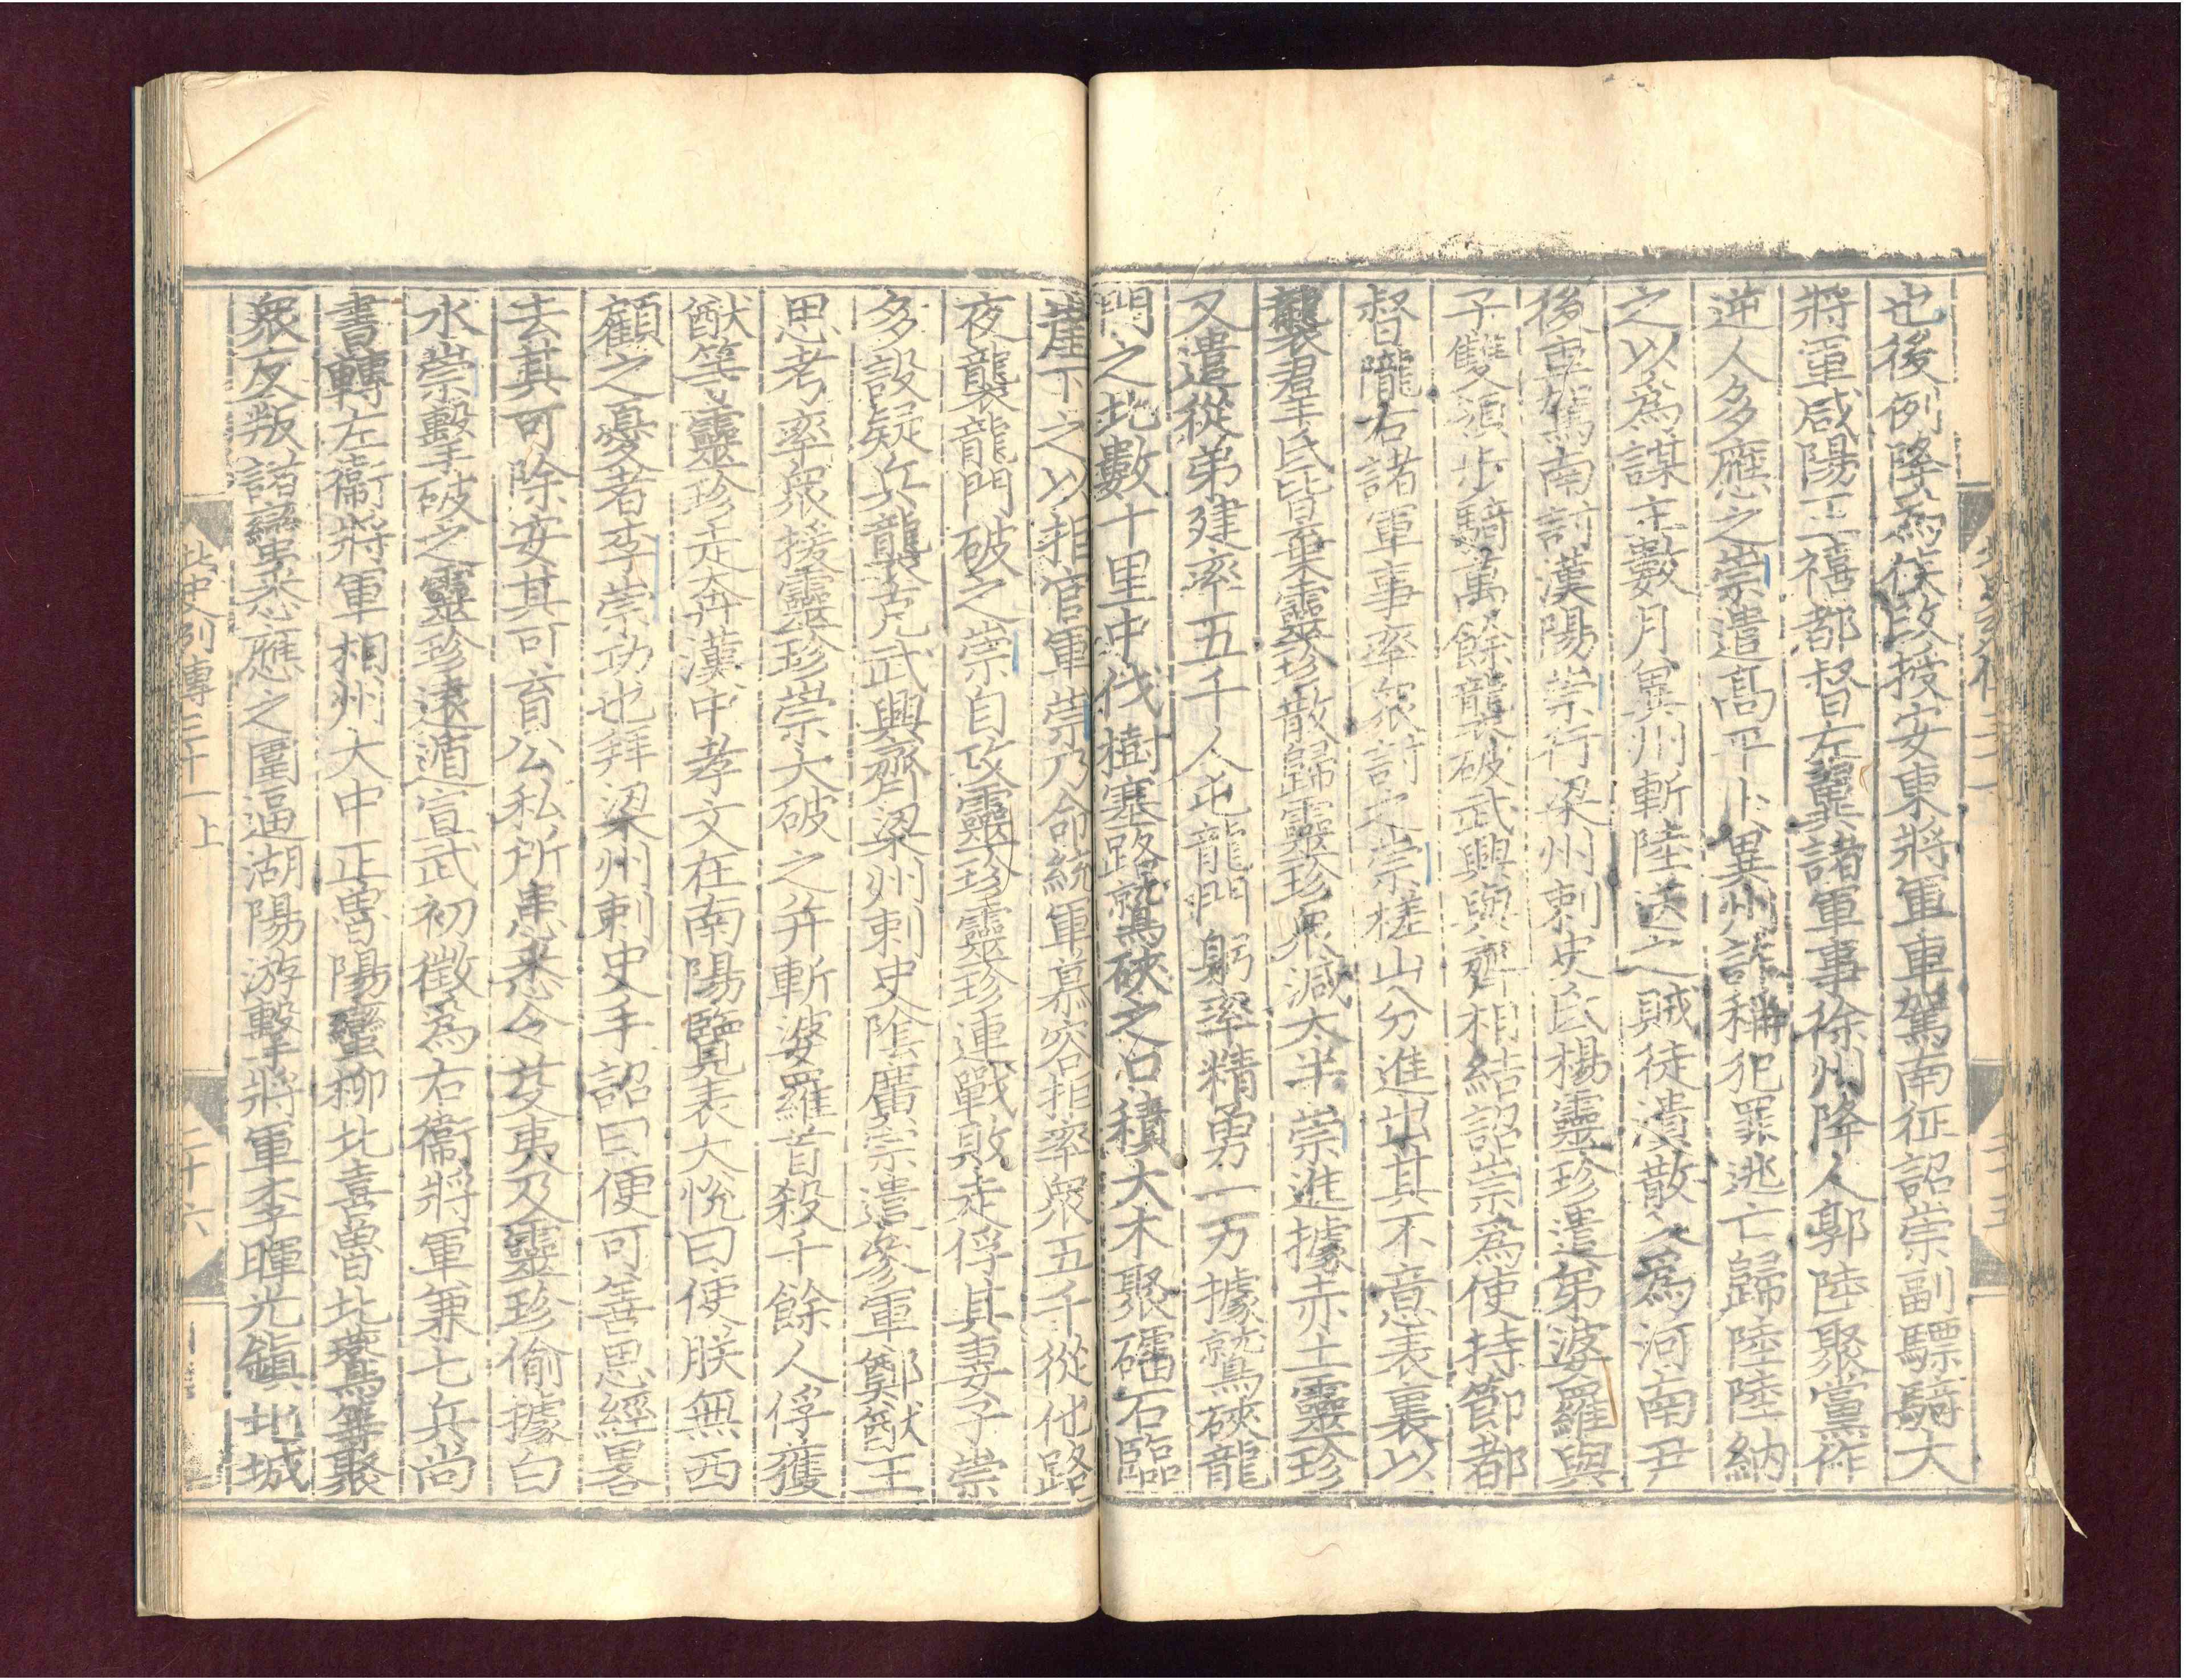 也後例降爲侯改授安東將軍車駕南征詔崇副驃騎大
將軍咸陽王禧都督左翼諸軍事徐州降人郭陸聚黨作
逆人多應之崇遣高平卜兾州詐稱犯罪逃亡歸陸陸納
之以爲謀主數月兾州斬陸送之賊徒潰散入爲河南尹
後車駕南討漢陽崇行梁州刺史氐楊靈珍遣弟婆羅與
子雙領步騎萬餘襲破武興與齊相結詔崇爲使持節都
督隴右諸軍事率衆討之崇槎山分進出其不意表裏以
襲羣氐皆棄靈珍散歸靈珍衆減太半崇進據赤土靈珍
又遣從弟建率五千人屯龍門躬率精勇一万據鷲硤龍
門之北數十里中伐樹塞路鷲硤之口積大木聚礌石臨
崖下之以拒官軍崇乃命統軍慕容拒率衆五千從他路
夜襲龍門破之崇自攻靈珍靈珍連戰敗走俘其妻子崇
多設疑兵襲克武興齊梁州刺史陰廣宗遣參軍鄭猷王
思考率衆援靈珍崇大破之并斬婆羅首殺千餘人俘獲
猷等靈珍走奔漢中孝文在南陽覽表大悅曰使朕無西
顧之憂者李崇功也拜梁州刺史手詔曰便可善思經畧
去其可除安其可育公私所患悉令芟夷及靈珍偷據白
水崇擊破之靈珍遠遁宣武初徵爲右衞將軍兼七兵尚
書轉左衞將軍相州大中正魯陽蠻柳北喜魯北鷰等聚
衆反叛諸蠻悉應之圍逼湖陽游擊將軍李暉光鎭北城
北史列傳三十一上 二十六